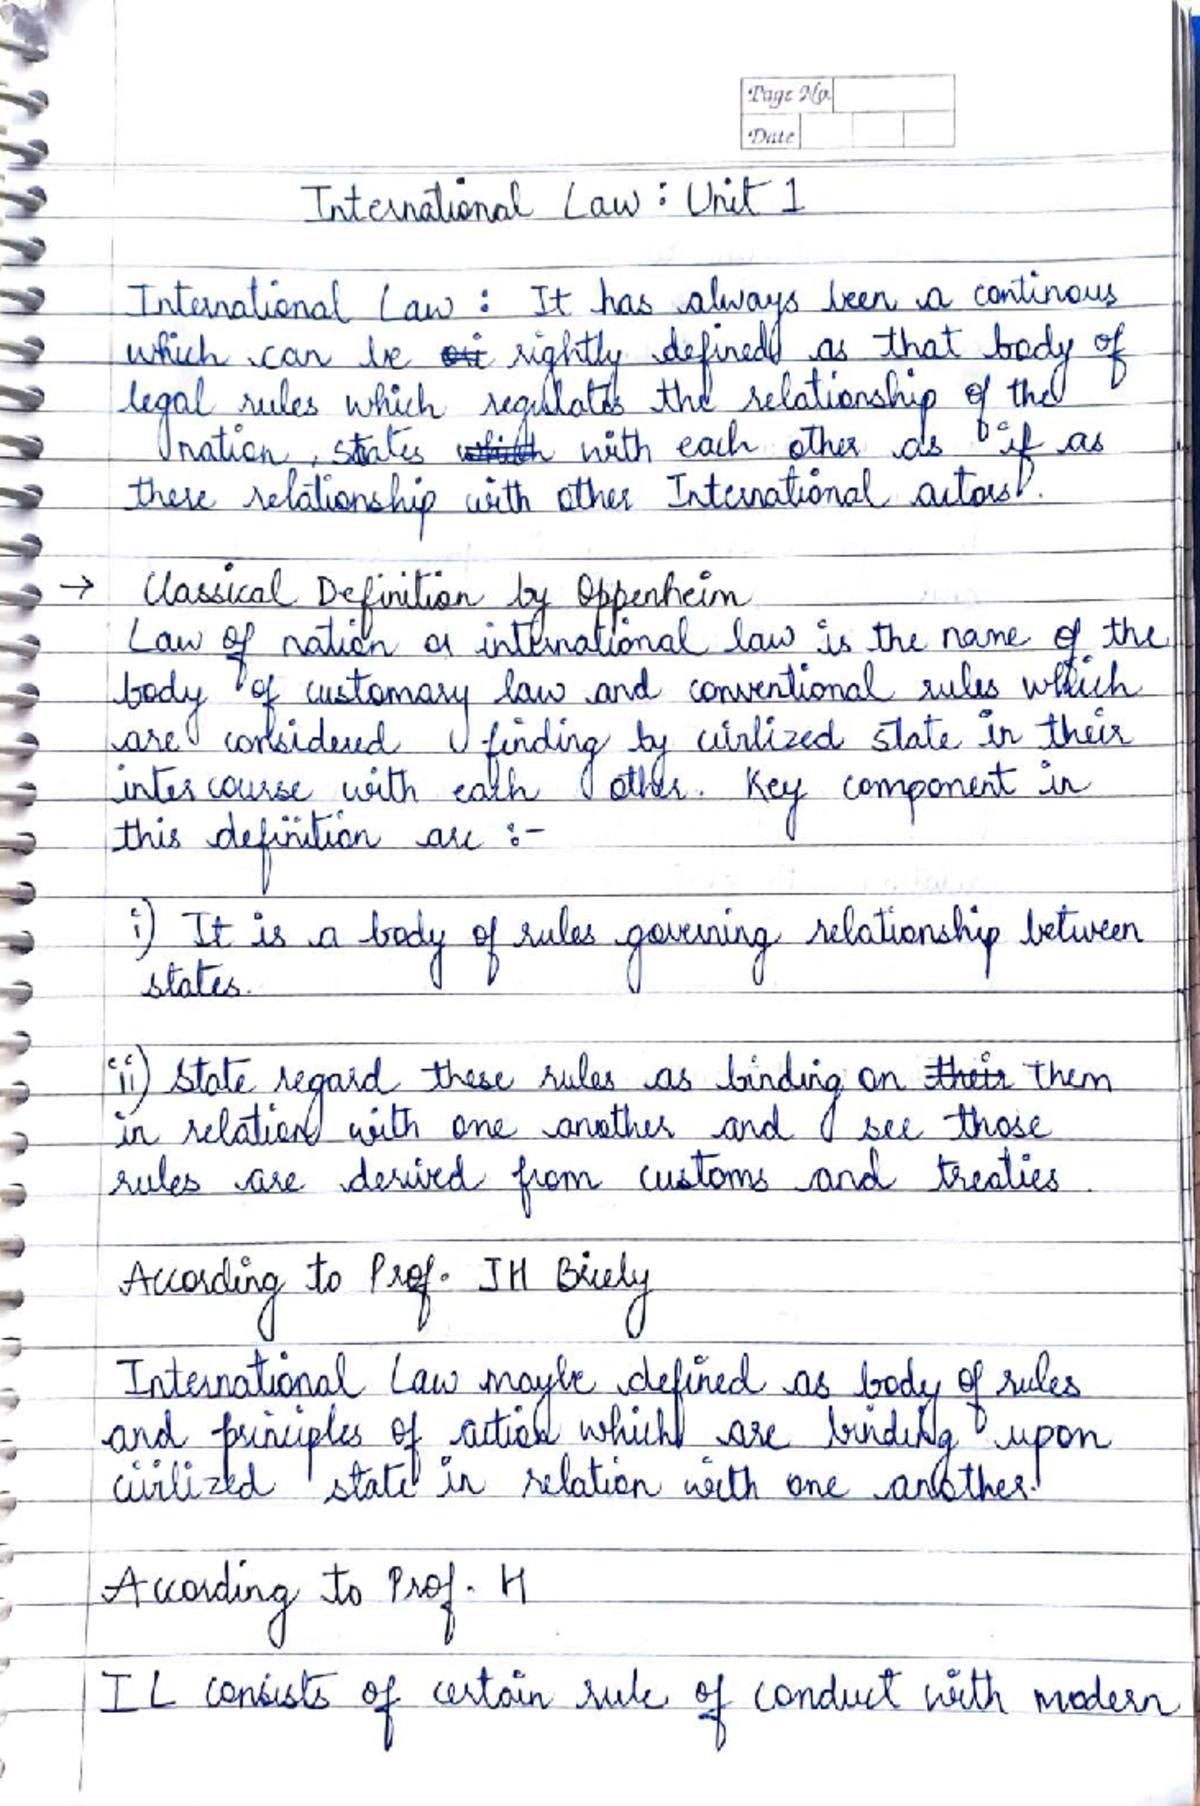 Page No.
Date
International Law : Unit 1
International Law : It has always been a continous
which can be rightly defined as that body of
legal rules which regulates the relationship of the
nation, states with each other as if as
there relationship with other International actors.
→ Classical Definition by Oppenheim
Law of nation or international law is the name of the
body of customary law and conventional rules which
are considered finding by civilized state in their
intercourse with each other. Key component in
this definition are :-
i) It is a body of rules governing relationship between
states.
ii) State regard these rules as binding on their them
in relation with one another and see those
rules are derived from customs and treaties.
According to Prof. JH Briely
International Law maybe defined as body of rules
and principles of action which are binding upon
civilized state in relation with one another.
According to Prof. H
IL consists of certain rule of conduct with modern